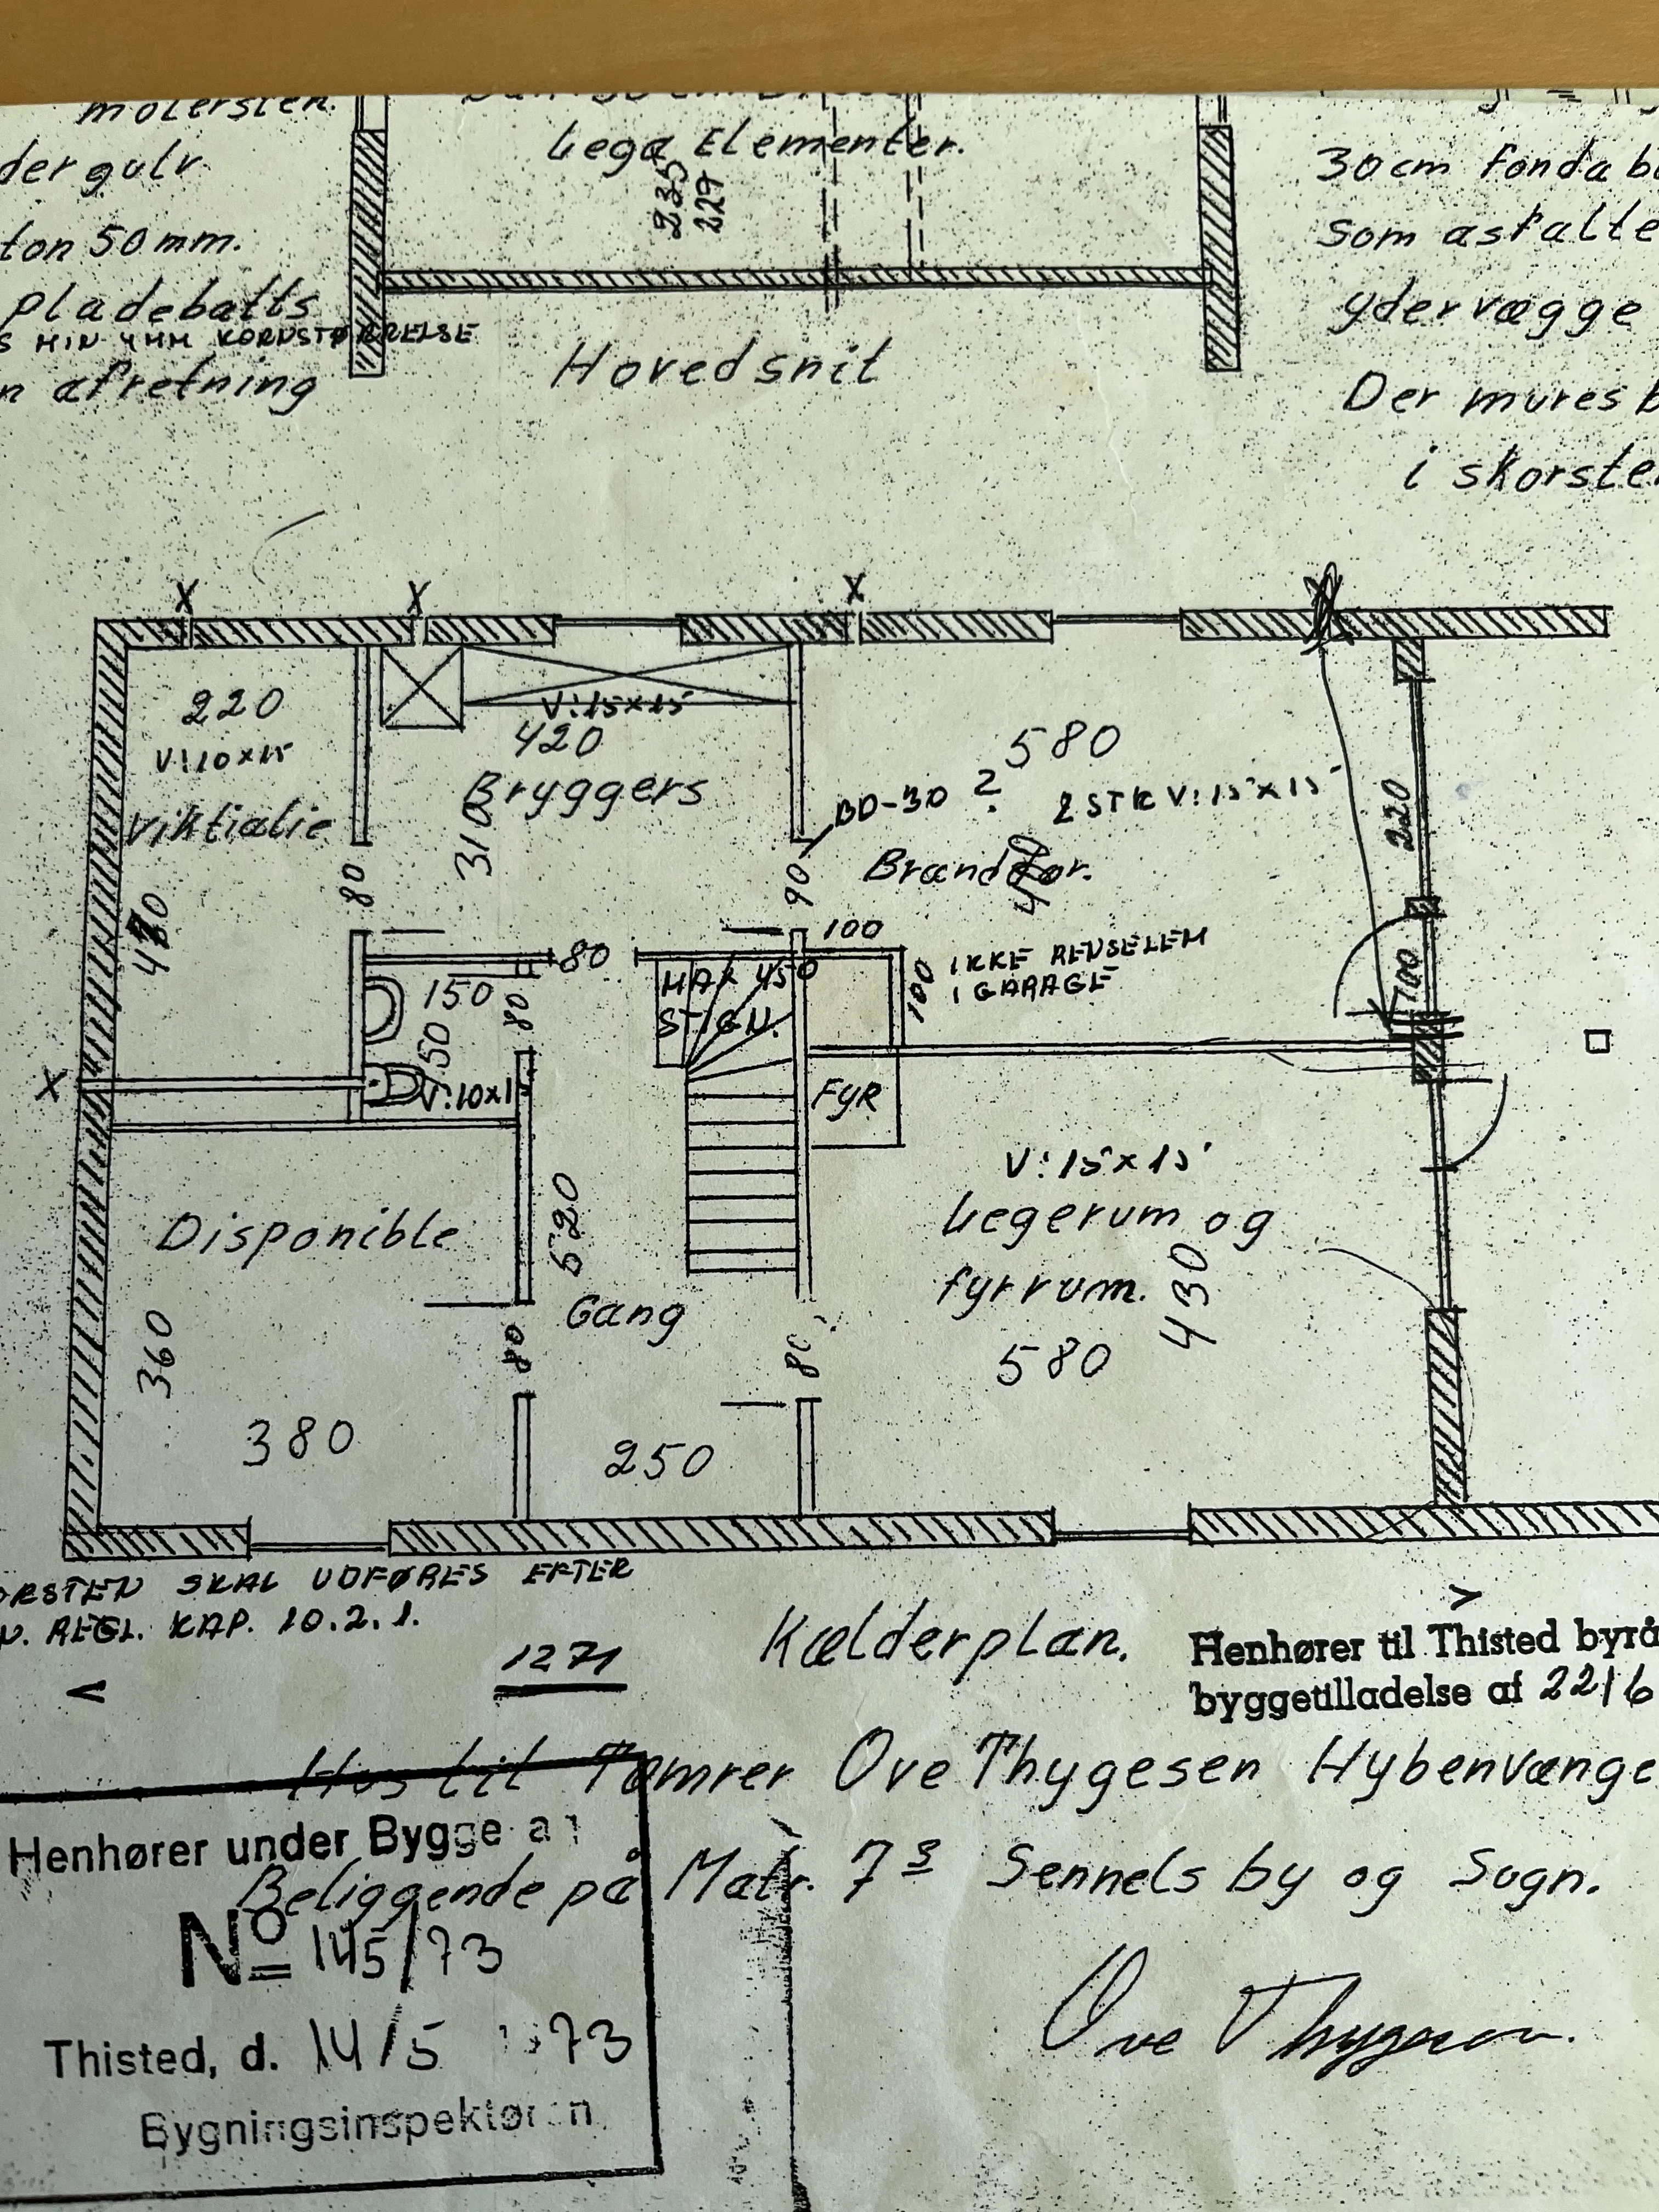 molersten.
der gulv
ton 50 mm.
pladebatts
S MIN 4 MM KORNSTØRRELSE
n afretning
Lega Elementer.
235
227
Hovedsnit
30 cm Fonda
som asfalte
ydervægge
Der mures b
i skorste
X
X
X
220
V:10x15
Viktialie
V:15x15
420
Bryggers
310
580
BD-30 ?
2 STK V:15x15
Branddør.
220
80
90
100
80
100
IKKE RENSELEM
I GARAGE
100
MAX 450
STIGN.
150
150
80
V:10x15
X
FYR
Disponible
520
Gang
V:15x15
Legerum og
fyrrum.
430
580
360
80
80
380
250
ORSTEN SKAL UDFØRES EFTER
N. REGL. KAP. 10.2.1.
1271
Kælderplan.
>
<
Henhører til Thisted byrå
byggetilladelse af 22/6
Hus til Tømrer Ove Thygesen Hybenvænge
Henhører under Bygge
Beliggende på Matr. 7 s Sennels by og Sogn.
No 145/73
Thisted, d. 14/5 73
Ove Thygesen.
Bygningsinspektør n